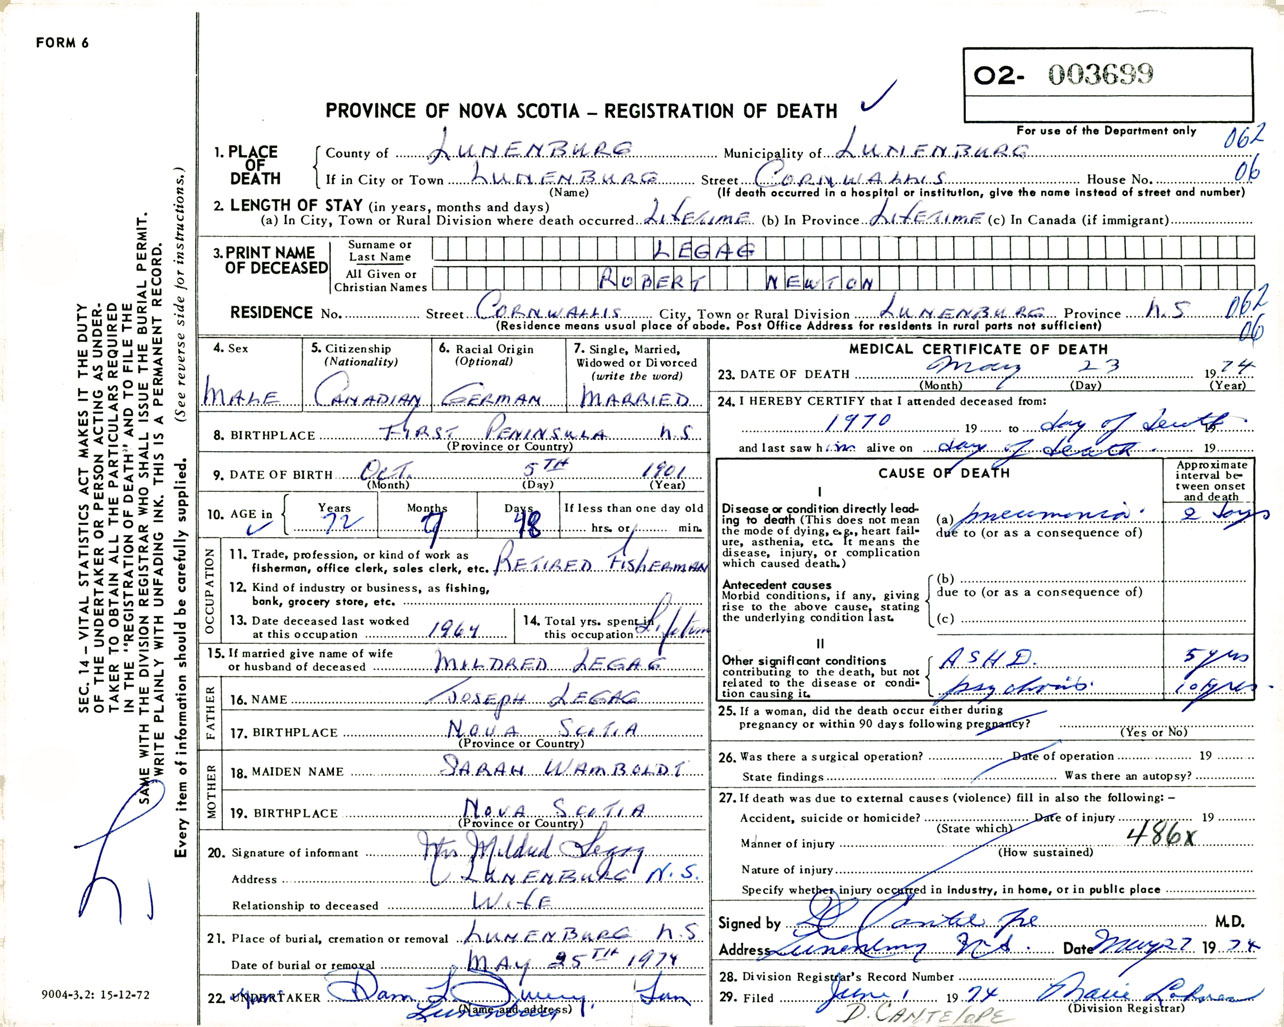 FORM 6
O2- 003699
PROVINCE OF NOVA SCOTIA – REGISTRATION OF DEATH ✓
For use of the Department only
062
06
1. PLACE OF DEATH
County of LUNENBURG Municipality of LUNENBURG
If in City or Town LUNENBURG Street CORNWALLIS House No.
(Name) (If death occurred in a hospital or institution, give the name instead of street and number)
2. LENGTH OF STAY (in years, months and days)
(a) In City, Town or Rural Division where death occurred LIFETIME (b) In Province LIFETIME (c) In Canada (if immigrant)
3. PRINT NAME OF DECEASED
Surname or Last Name LEGAG
All Given or Christian Names ROBERT NEWTON
RESIDENCE No. Street CORNWALLIS City, Town or Rural Division LUNENBURG Province N.S 062
(Residence means usual place of abode. Post Office Address for residents in rural parts not sufficient) 06
4. Sex MALE
5. Citizenship (Nationality) CANADIAN
6. Racial Origin (Optional) GERMAN
7. Single, Married, Widowed or Divorced (write the word) MARRIED
8. BIRTHPLACE FIRST PENINSULA N.S
(Province or Country)
9. DATE OF BIRTH OCT. 5TH 1901
(Month) (Day) (Year)
10. AGE in ✓ Years 72 Months 7 Days 18 If less than one day old
hrs. or min.
OCCUPATION
11. Trade, profession, or kind of work as
fisherman, office clerk, sales clerk, etc. RETIRED FISHERMAN
12. Kind of industry or business, as fishing,
bank, grocery store, etc.
13. Date deceased last worked
at this occupation 1964
14. Total yrs. spent in
this occupation Lifetime
15. If married give name of wife
or husband of deceased MILDRED LEGAG
FATHER
16. NAME JOSEPH LEGAG
17. BIRTHPLACE NOVA SCOTIA
(Province or Country)
MOTHER
18. MAIDEN NAME SARAH WAMBOLDT
19. BIRTHPLACE NOVA SCOTIA
(Province or Country)
20. Signature of informant Mrs Mildred Legag
Address LUNENBURG N.S.
Relationship to deceased WIFE
21. Place of burial, cremation or removal LUNENBURG N.S
Date of burial or removal MAY 25TH 1974
22. UNDERTAKER
(Name and address)
Lunenburg
MEDICAL CERTIFICATE OF DEATH
23. DATE OF DEATH May 23 1974
(Month) (Day) (Year)
24. I HEREBY CERTIFY that I attended deceased from:
1970 19 to day of death 19
and last saw him alive on day of death 19
CAUSE OF DEATH
Approximate interval between onset and death
I
Disease or condition directly leading to death (This does not mean the mode of dying, e.g., heart failure, asthenia, etc. It means the disease, injury, or complication which caused death.)
(a) pneumonia 2 days
due to (or as a consequence of)
Antecedent causes
Morbid conditions, if any, giving rise to the above cause, stating the underlying condition last.
(b)
due to (or as a consequence of)
(c)
II
Other significant conditions contributing to the death, but not related to the disease or condition causing it.
ASHD. 5 yrs
psychosis 10 yrs.
25. If a woman, did the death occur either during
pregnancy or within 90 days following pregnancy?
(Yes or No)
26. Was there a surgical operation? Date of operation 19
State findings Was there an autopsy?
27. If death was due to external causes (violence) fill in also the following: –
Accident, suicide or homicide? Date of injury 19
(State which)
Manner of injury 486x
(How sustained)
Nature of injury
Specify whether injury occurred in Industry, in home, or in public place
Signed by D Cantelope M.D.
Address Lunenburg N.S. Date May 27 1974
28. Division Registrar's Record Number
29. Filed June 1 1974 Marie
(Division Registrar)
D. CANTELOPE
SEC. 14 – VITAL STATISTICS ACT MAKES IT THE DUTY
OF THE UNDERTAKER OR PERSON ACTING AS UNDER-
TAKER TO OBTAIN ALL THE PARTICULARS REQUIRED
IN THE "REGISTRATION OF DEATH" AND TO FILE THE
SAME WITH THE DIVISION REGISTRAR WHO SHALL ISSUE THE BURIAL PERMIT.
WRITE PLAINLY WITH UNFADING INK. THIS IS A PERMANENT RECORD.
Every item of information should be carefully supplied. (See reverse side for instructions.)
9004-3.2: 15-12-72